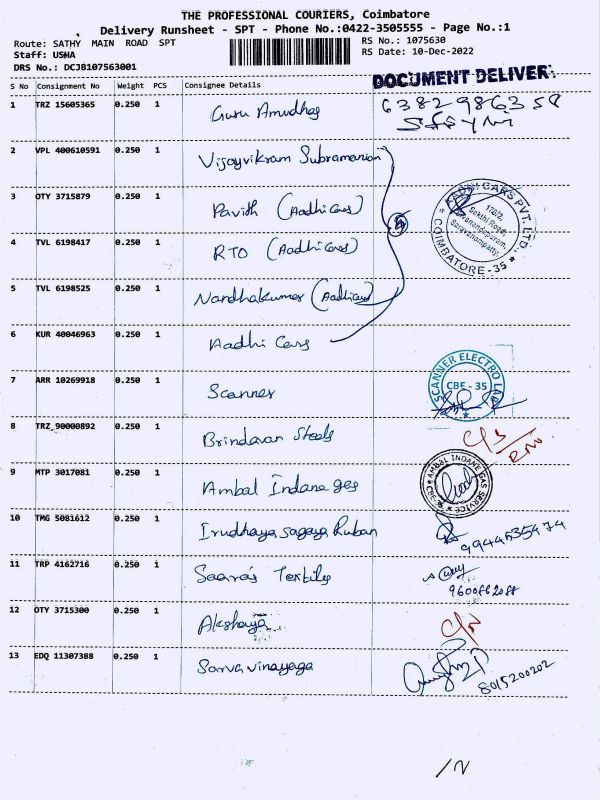 THE PROFESSIONAL COURIERS, Coimbatore
Delivery Runsheet - SPT - Phone No.:0422-3505555 - Page No.:1
Route: SATHY MAIN ROAD SPT
RS No.: 1075630
Staff: USHA
RS Date: 10-Dec-2022
DRS No.: DCJB107563001
DOCUMENT DELIVER
S No Consignment No Weight PCS Consignee Details
1 TRZ 15605365 0.250 1 Guru Amudhas 6382986358
2 VPL 400610591 0.250 1 Vijayvikram Subramanian
3 OTY 3715879 0.250 1 Pavith (Aadhi Cars)
AADHI CARS PVT. LTD. * COIMBATORE - 35 *
178/2,
Sakthi Road,
Saravanampatty,
4 TVL 6198417 0.250 1 RTO (Aadhi Cars)
5 TVL 6198525 0.250 1 Nandhakumar (Aadhi Cars)
6 KUR 40046963 0.250 1 Aadhi Cars
7 ARR 10269918 0.250 1 Scanner
SCANNER ELECTRO LAB
CBE - 35
8 TRZ 90000892 0.250 1 Brindavan Steels
9 MTP 3017081 0.250 1 Ambal Indane ges
AMBAL INDANE GAS SERVICE
10 TMG 5081612 0.250 1 Irudhaya sagaya Ruban
11 TRP 4162716 0.250 1 Saara's Textiles
12 OTY 3715300 0.250 1 Akshaya
13 EDQ 11307388 0.250 1 Sarva vinayaga 8015200202